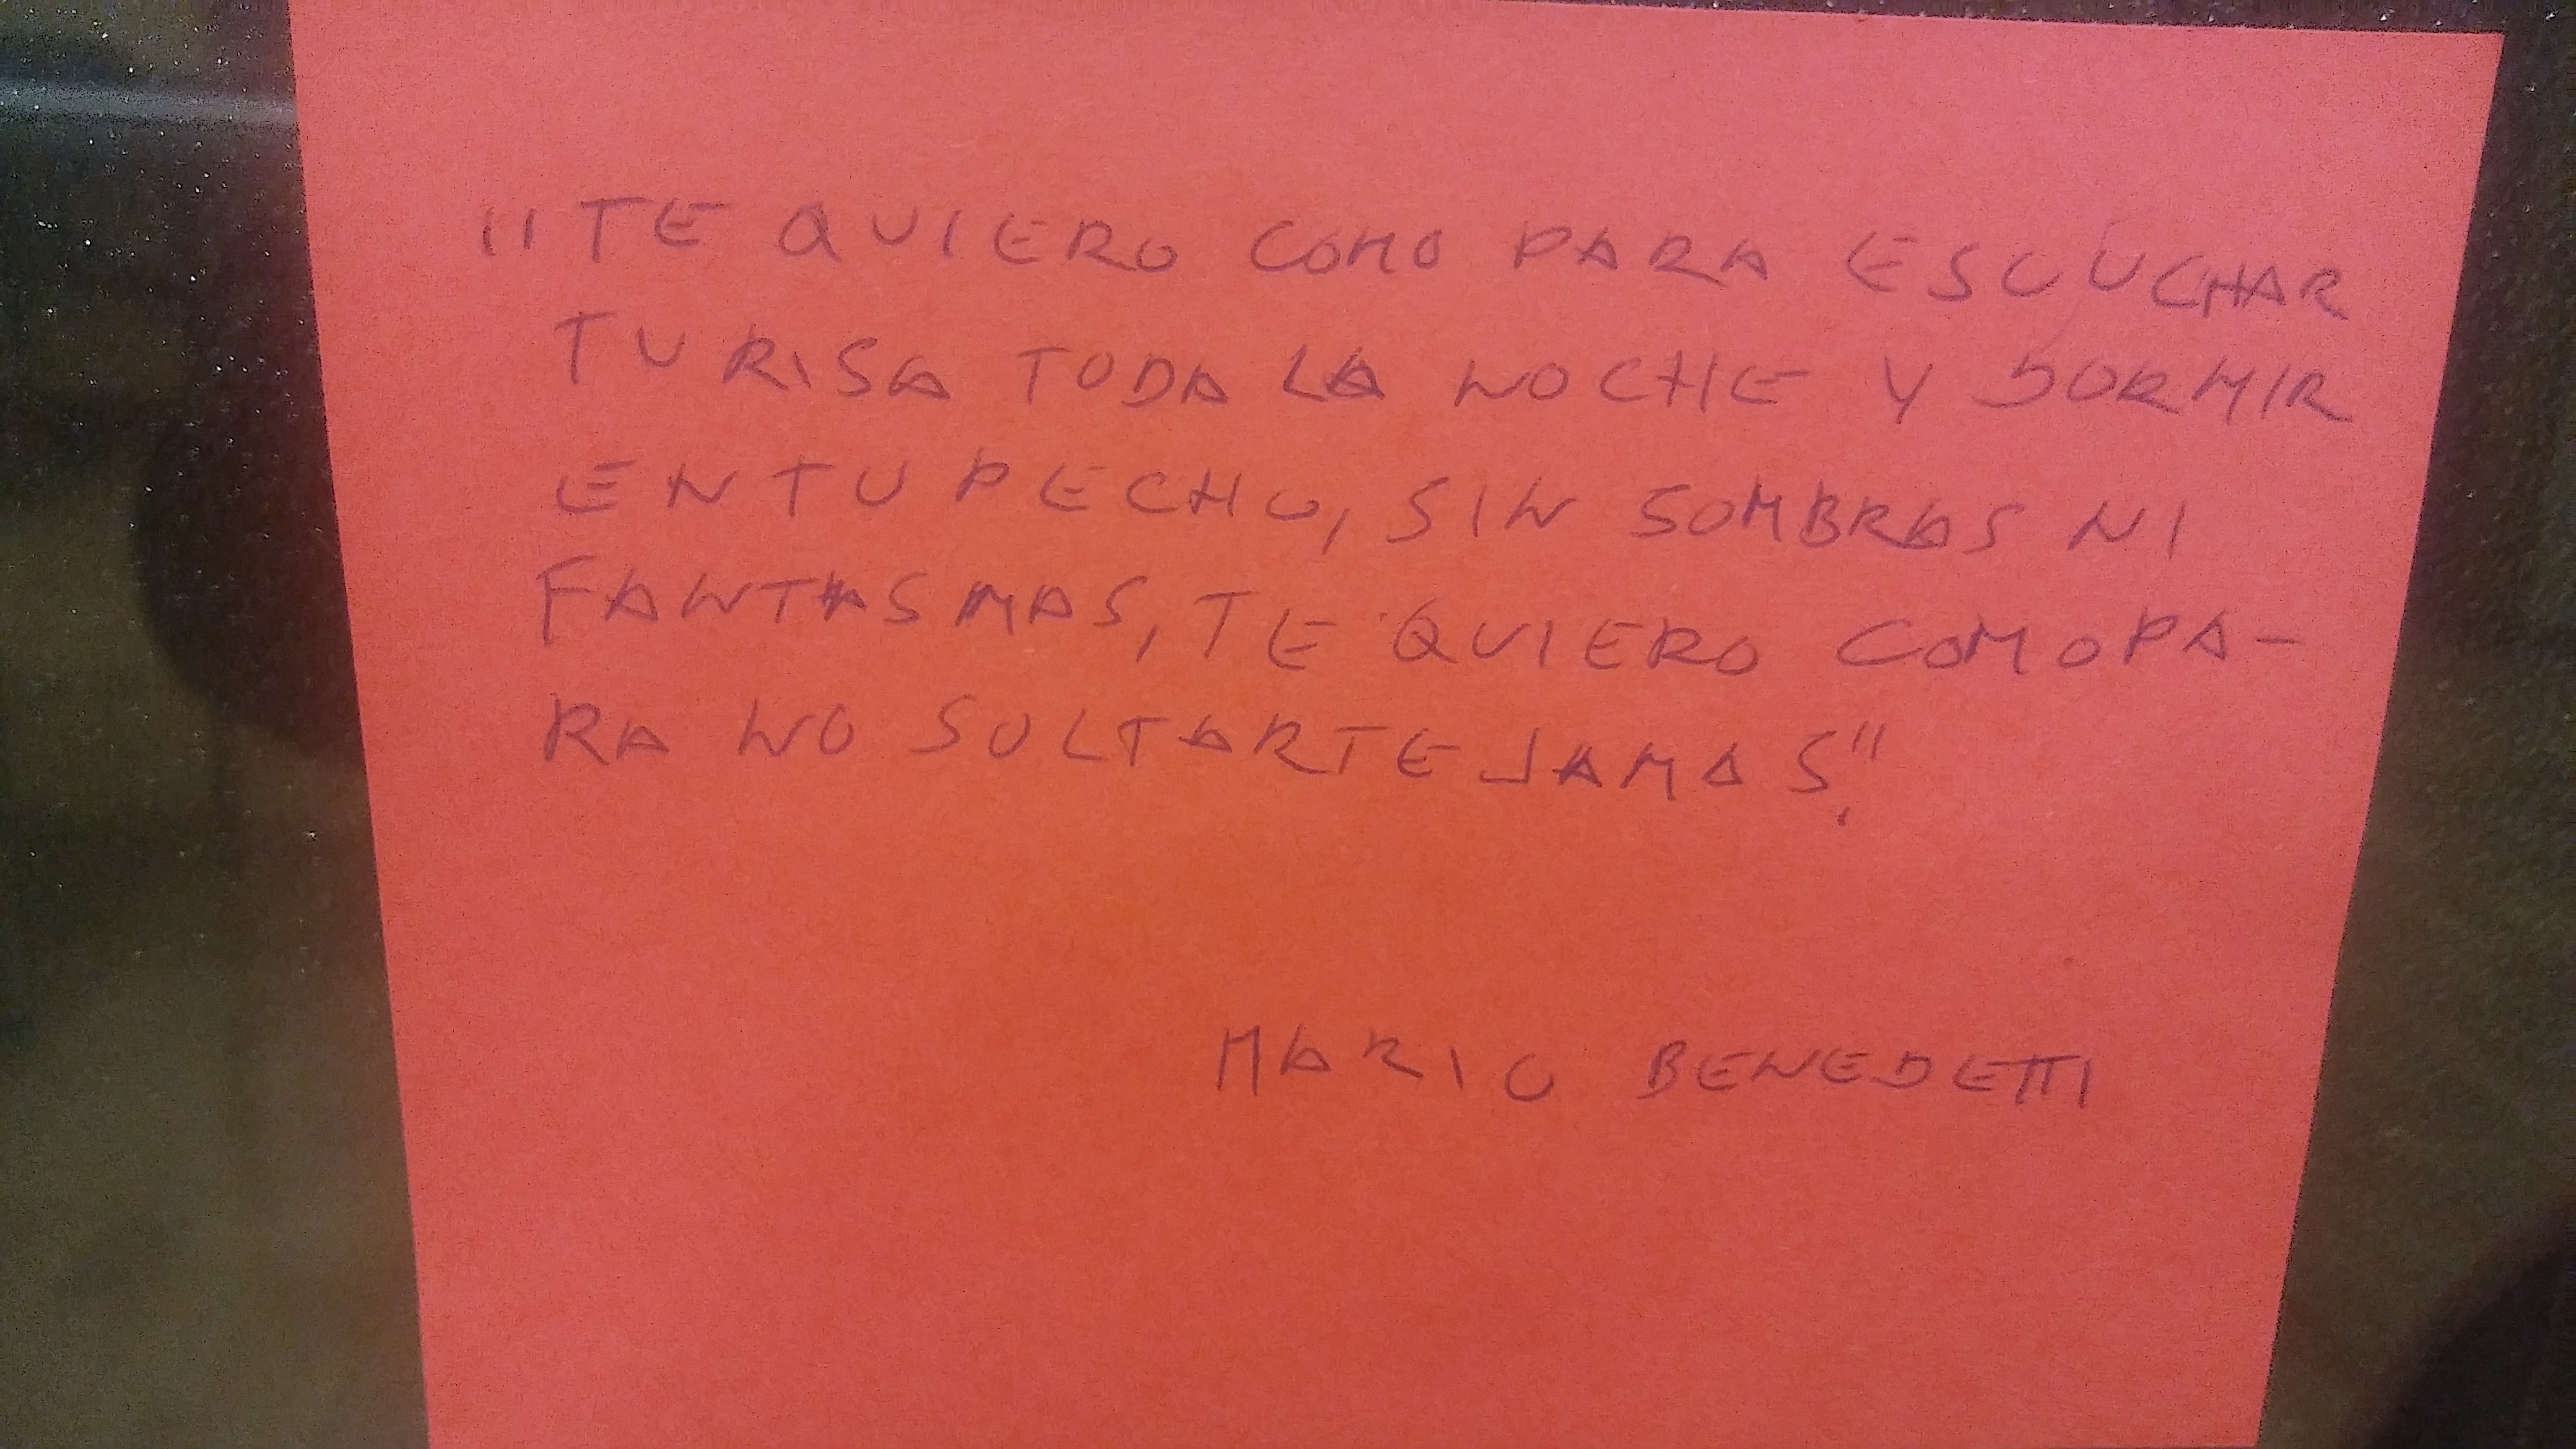 "TE QUIERO COMO PARA ESCUCHAR
TU RISA TODA LA NOCHE Y DORMIR
EN TU PECHO, SIN SOMBRAS NI
FANTASMAS, TE QUIERO COMO PA-
RA NO SOLTARTE JAMAS."
MARIO BENEDETTI